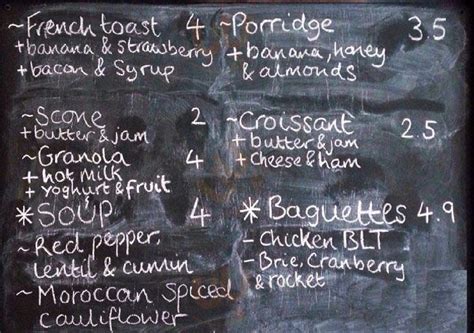 ~French toast 4
+banana & strawberry
+bacon & Syrup
~Scone 2
+butter & jam
~Granola 4
+hot Milk
+yoghurt & fruit
*SOUP 4
~Red pepper,
lentil & cumin
~Moroccan Spiced
cauliflower
~Porridge 3.5
+banana, honey
& almonds
~Croissant 2.5
+butter & jam
+cheese & ham
*Baguettes 4.9
- Chicken BLT
- Brie, Cranberry
& rocket